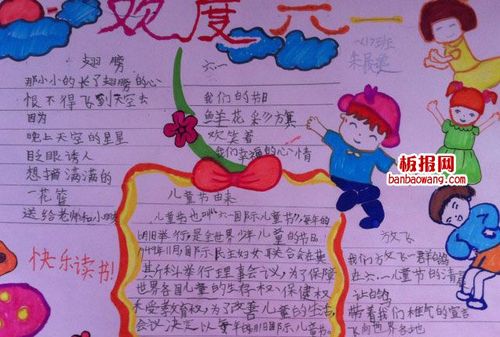 欢度六一
翅膀
那小小的长了翅膀的心
恨不得飞到天空去
因为
晚上天空的星星
眨眼诱人
想摘满满的
一花篮
送给老师和小
六一
我们的节日
鲜花彩旗
欢笑着
我们幸福的心情
板报网
banbaowang.com
儿童节由来
儿童节也叫"六一国际儿童节",每年的
6月1日举行,是全世界少年儿童的节日
国际民主妇女联合会在莫
斯科举行理事会议,为了保障
世界各国儿童的生存权、保健权
和受教育权,为了改善儿童的生活,
会议决定以每年的6月1日国际儿童节
快乐读书!
放飞
我们放飞一群白鸽
在六一儿童节的清晨
让白鸽
带着我们稚气的宣言
飞向世界各地